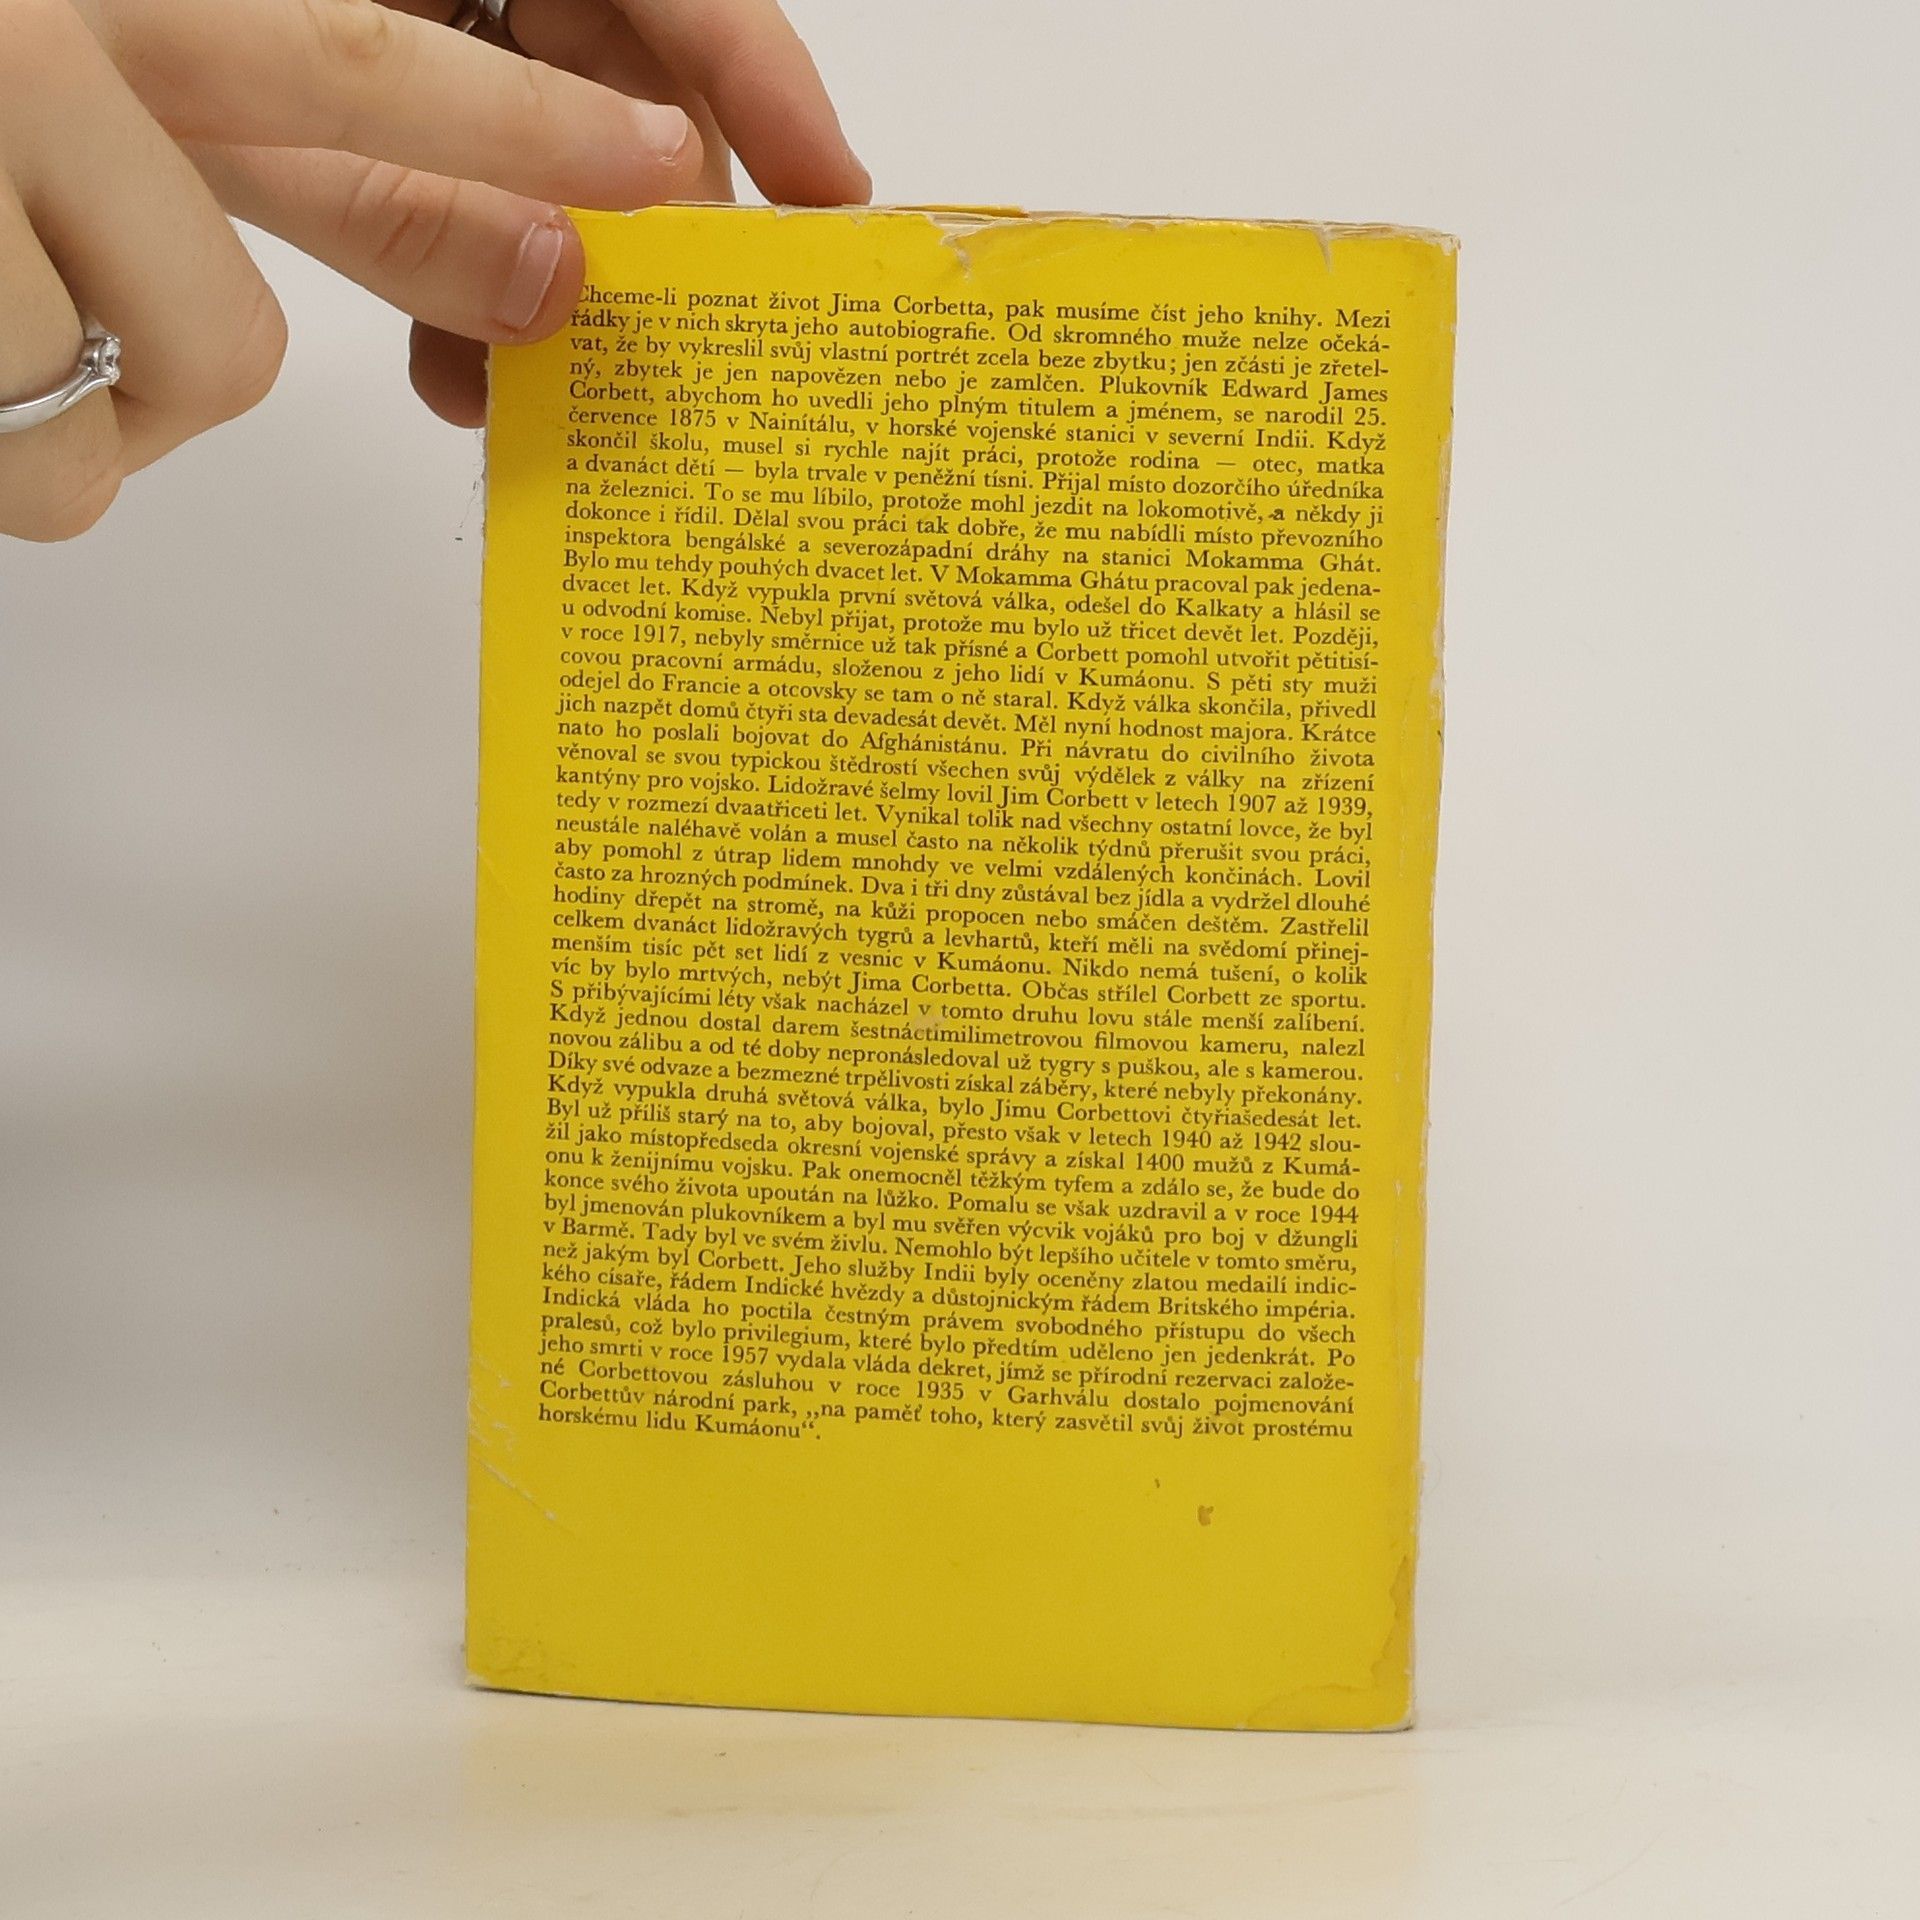 Chceme-li poznat život Jima Corbetta, pak musíme číst jeho knihy. Mezi
řádky je v nich skryta jeho autobiografie. Od skromného muže nelze očeká-
vat, že by vykreslil svůj vlastní portrét zcela beze zbytku; jen zčásti je zřetel-
ný, zbytek je jen napovězen nebo je zamlčen. Plukovník Edward James
Corbett, abychom ho uvedli jeho plným titulem a jménem, se narodil 25.
července 1875 v Nainítálu, v horské vojenské stanici v severní Indii. Když
skončil školu, musel si rychle najít práci, protože rodina — otec, matka
a dvanáct dětí — byla trvale v peněžní tísni. Přijal místo dozorčího úředníka
na železnici. To se mu líbilo, protože mohl jezdit na lokomotivě, a někdy ji
dokonce i řídil. Dělal svou práci tak dobře, že mu nabídli místo převozního
inspektora bengálské a severozápadní dráhy na stanici Mokamma Ghát.
Bylo mu tehdy pouhých dvacet let. V Mokamma Ghátu pracoval pak jedena-
dvacet let. Když vypukla první světová válka, odešel do Kalkaty a hlásil se
u odvodní komise. Nebyl přijat, protože mu bylo už třicet devět let. Později,
v roce 1917, nebyly směrnice už tak přísné a Corbett pomohl utvořit pětitisí-
covou pracovní armádu, složenou z jeho lidí v Kumáonu. S pěti sty muži
odejel do Francie a otcovsky se tam o ně staral. Když válka skončila, přivedl
jich nazpět domů čtyři sta devadesát devět. Měl nyní hodnost majora. Krátce
nato ho poslali bojovat do Afghánistánu. Při návratu do civilního života
věnoval se svou typickou štědrostí všechen svůj výdělek z války na zřízení
kantýny pro vojsko. Lidožravé šelmy lovil Jim Corbett v letech 1907 až 1939,
tedy v rozmezí dvaatřiceti let. Vynikal tolik nad všechny ostatní lovce, že byl
neustále naléhavě volán a musel často na několik týdnů přerušit svou práci,
aby pomohl z útrap lidem mnohdy ve velmi vzdálených končinách. Lovil
často za hrozných podmínek. Dva i tři dny zůstával bez jídla a vydržel dlouhé
hodiny dřepět na stromě, na kůži propocen nebo smáčen deštěm. Zastřelil
celkem dvanáct lidožravých tygrů a levhartů, kteří měli na svědomí přinej-
menším tisíc pět set lidí z vesnic v Kumáonu. Nikdo nemá tušení, o kolik
víc by bylo mrtvých, nebýt Jima Corbetta. Občas střílel Corbett ze sportu.
S přibývajícími léty však nacházel v tomto druhu lovu stále menší zalíbení.
Když jednou dostal darem šestnáctimilimetrovou filmovou kameru, nalezl
novou zálibu a od té doby nepronásledoval už tygry s puškou, ale s kamerou.
Díky své odvaze a bezmezné trpělivosti získal záběry, které nebyly překonány.
Když vypukla druhá světová válka, bylo Jimu Corbettovi čtyřiašedesát let.
Byl už příliš starý na to, aby bojoval, přesto však v letech 1940 až 1942 slou-
žil jako místopředseda okresní vojenské správy a získal 1400 mužů z Kumá-
onu k ženijnímu vojsku. Pak onemocněl těžkým tyfem a zdálo se, že bude do
konce svého života upoután na lůžko. Pomalu se však uzdravil a v roce 1944
byl jmenován plukovníkem a byl mu svěřen výcvik vojáků pro boj v džungli
v Barmě. Tady byl ve svém živlu. Nemohlo být lepšího učitele v tomto směru,
než jakým byl Corbett. Jeho služby Indii byly oceněny zlatou medailí indic-
kého císaře, řádem Indické hvězdy a důstojnickým řádem Britského impéria.
Indická vláda ho poctila čestným právem svobodného přístupu do všech
pralesů, což bylo privilegium, které bylo předtím uděleno jen jedenkrát. Po
jeho smrti v roce 1957 vydala vláda dekret, jímž se přírodní rezervaci založe-
né Corbettovou zásluhou v roce 1935 v Garhválu dostalo pojmenování
Corbettův národní park, „na paměť toho, který zasvětil svůj život prostému
horskému lidu Kumáonu“.